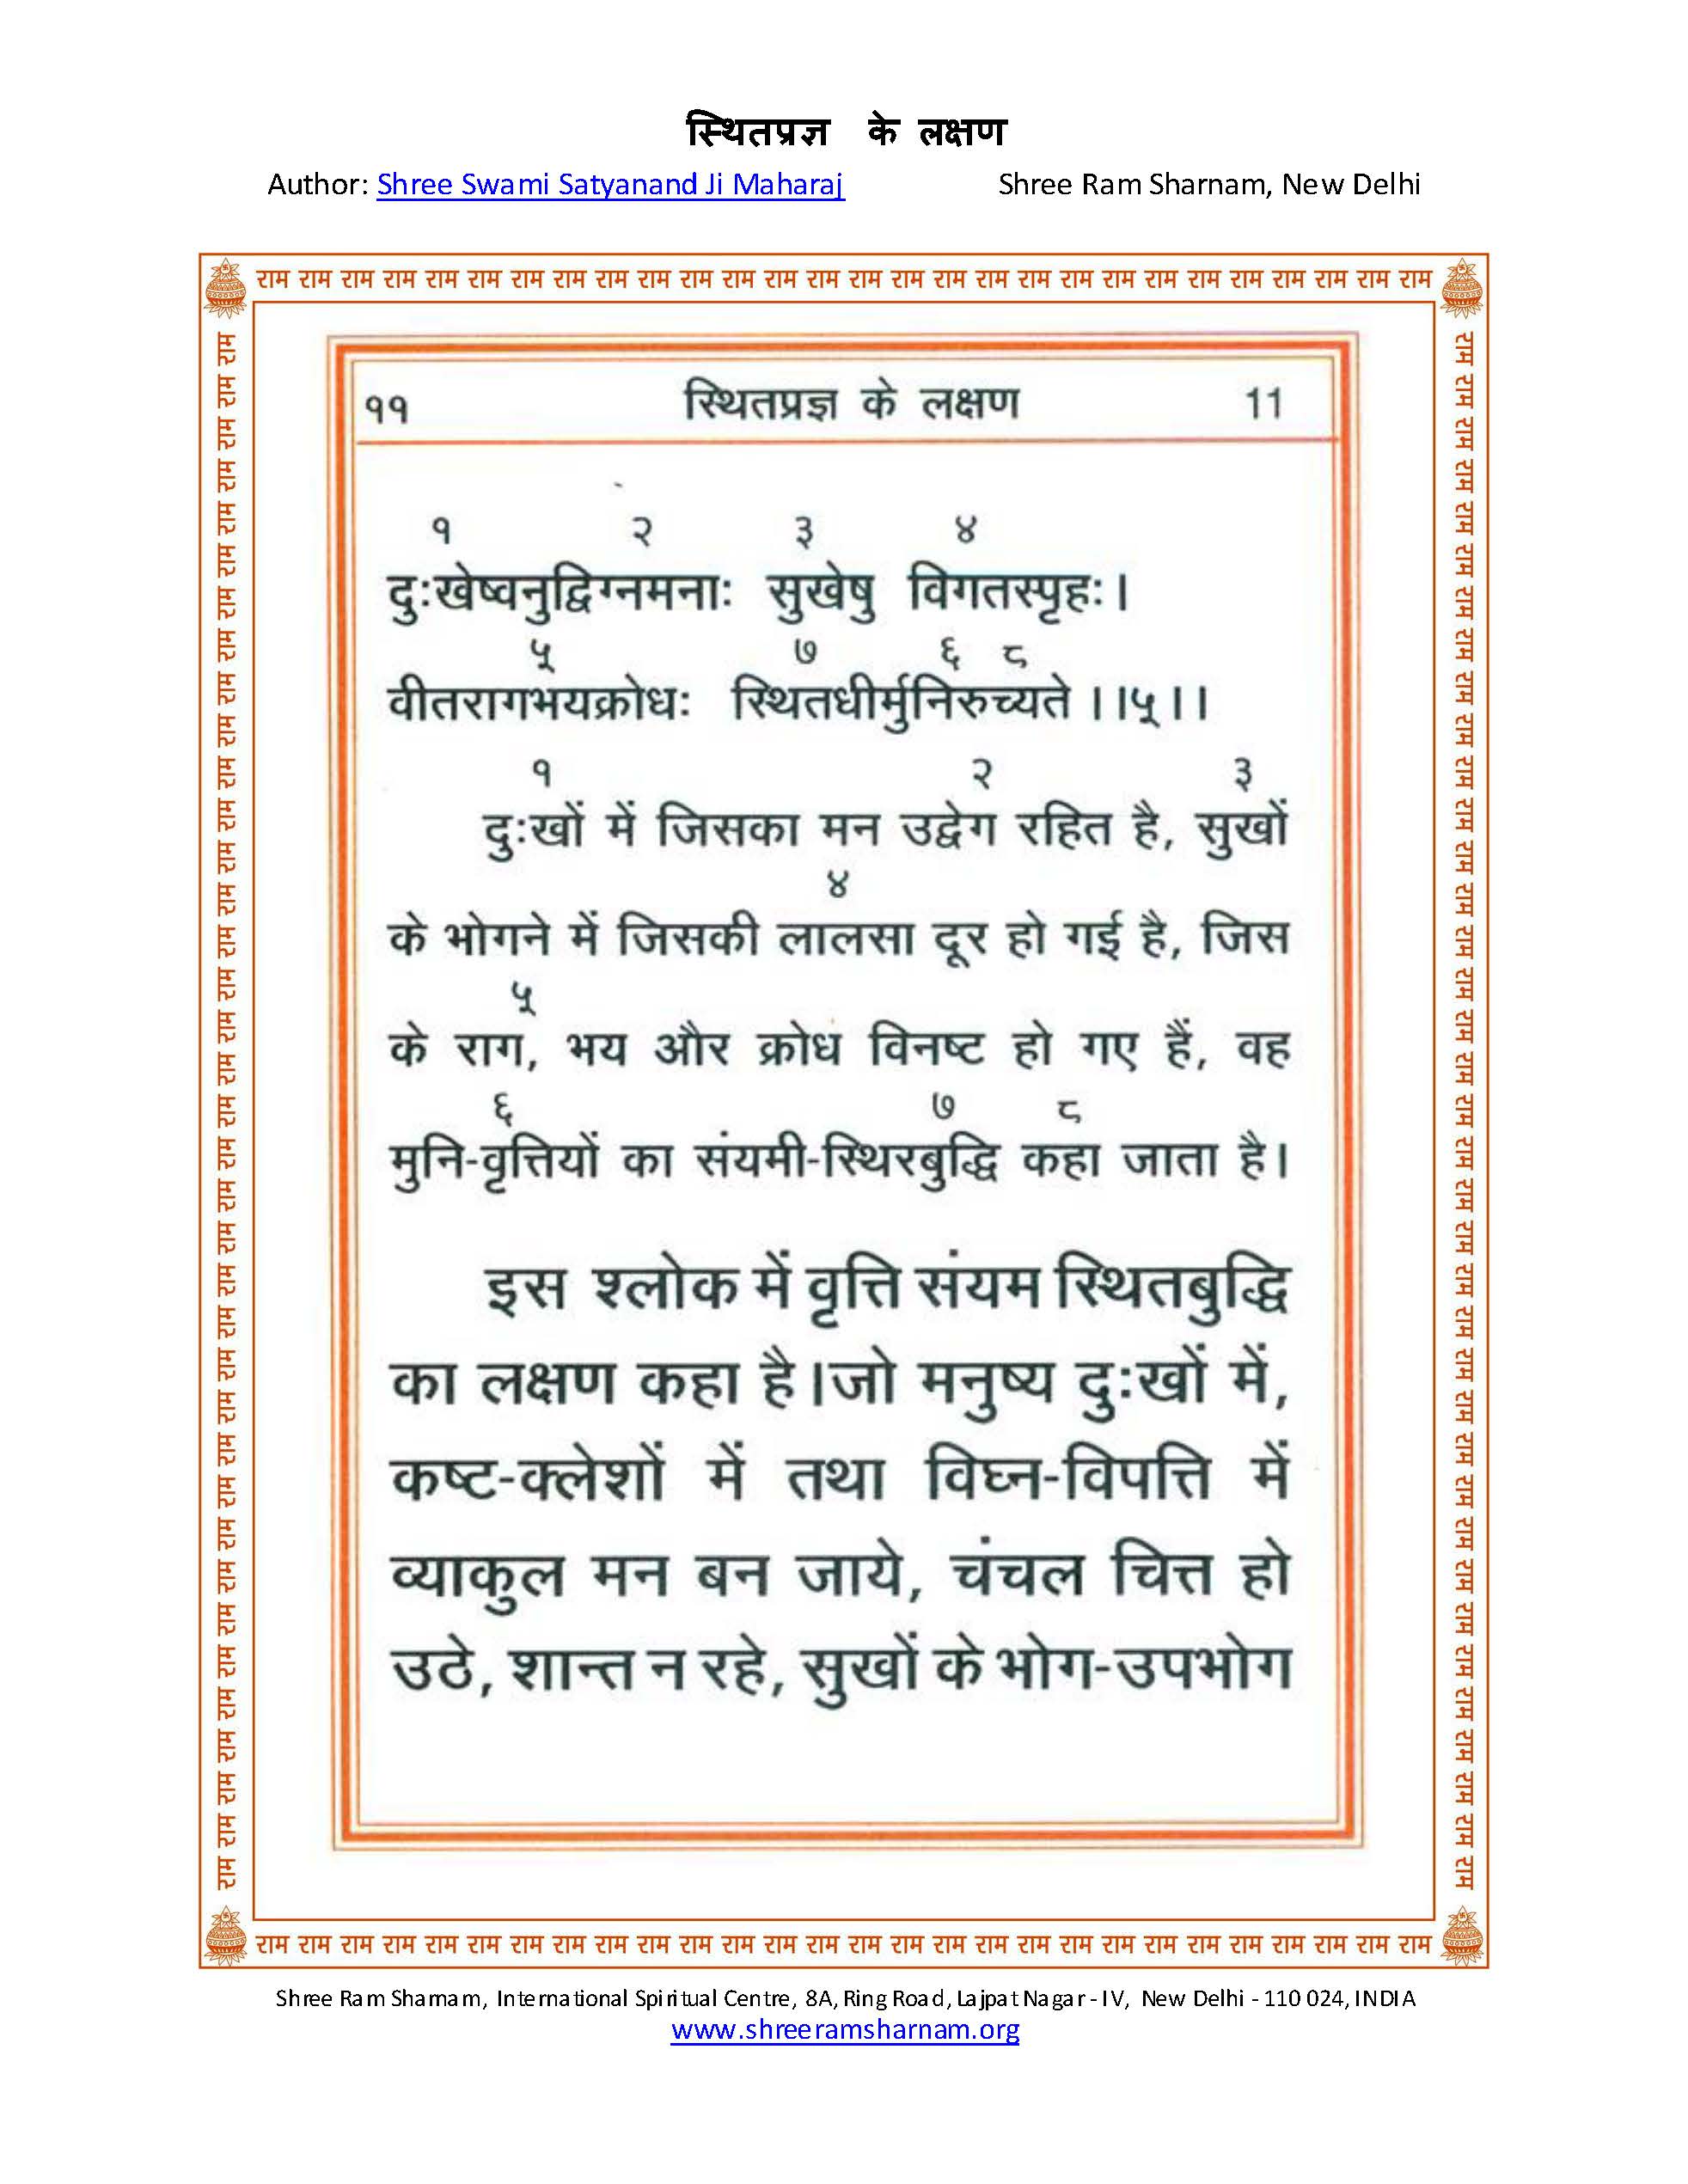 स्थितप्रज्ञ के लक्षण
Author: Shree Swami Satyanand Ji Maharaj Shree Ram Sharnam, New Delhi
राम राम राम राम राम राम राम राम राम राम राम राम राम राम राम राम राम राम राम राम राम राम राम राम राम राम राम राम
११ स्थितप्रज्ञ के लक्षण 11
१ २ ३ ४
दुःखेष्वनुद्विग्नमनाः सुखेषु विगतस्पृहः।
५ ७ ६ ८
वीतरागभयक्रोधः स्थितधीर्मुनिरुच्यते ।।५।।
१ २ ३
दुःखों में जिसका मन उद्वेग रहित है, सुखों
४
के भोगने में जिसकी लालसा दूर हो गई है, जिस
५
के राग, भय और क्रोध विनष्ट हो गए हैं, वह
६ ७ ८
मुनि-वृत्तियों का संयमी-स्थिरबुद्धि कहा जाता है।
इस श्लोक में वृत्ति संयम स्थितबुद्धि
का लक्षण कहा है।जो मनुष्य दुःखों में,
कष्ट-क्लेशों में तथा विघ्न-विपत्ति में
व्याकुल मन बन जाये, चंचल चित्त हो
उठे, शान्त न रहे, सुखों के भोग-उपभोग
राम राम राम राम राम राम राम राम राम राम राम राम राम राम राम राम राम राम राम राम राम राम राम राम राम राम राम राम
राम राम राम राम राम राम राम राम राम राम राम राम राम राम राम राम राम राम राम राम राम राम राम राम राम राम राम राम राम राम राम राम राम राम राम राम राम
राम राम राम राम राम राम राम राम राम राम राम राम राम राम राम राम राम राम राम राम राम राम राम राम राम राम राम राम राम राम राम राम राम राम राम राम राम
Shree Ram Sharnam, International Spiritual Centre, 8A, Ring Road, Lajpat Nagar - IV, New Delhi - 110 024, INDIA
www.shreeramsharnam.org